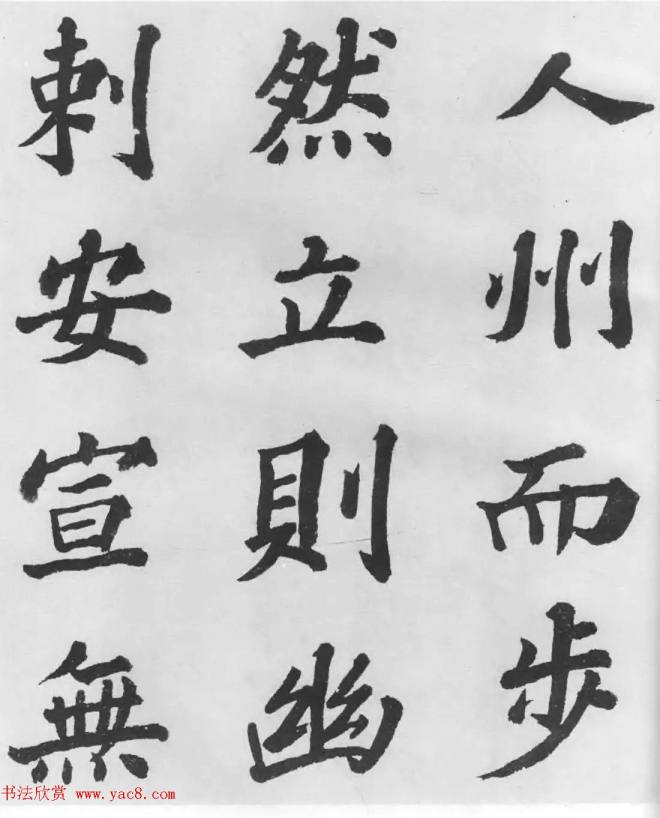 人州而步
然立則幽
刺安宣無
书法欣赏 www.yac8.com